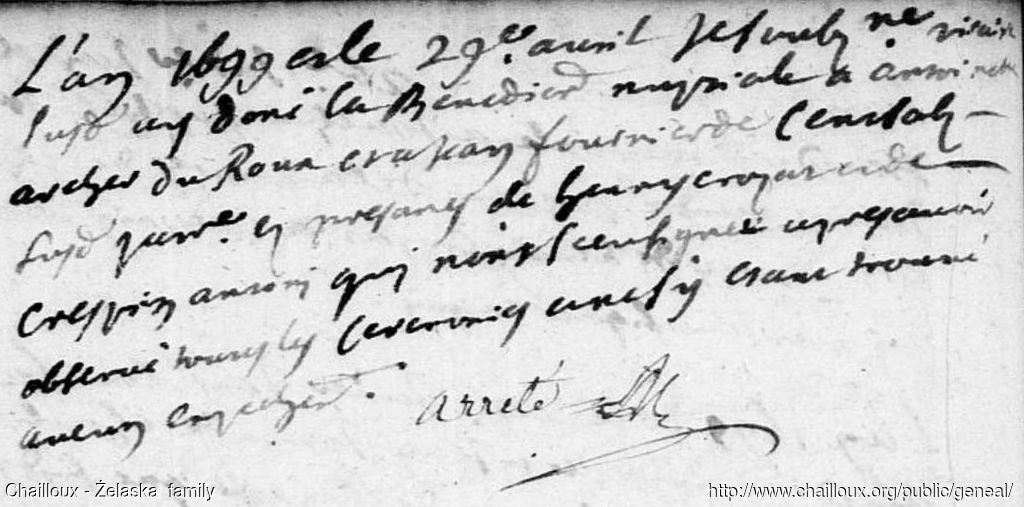 L'an 1699 et le 29e avril Je soub ne vicaire
susd ay doné la Benedion nuptiale a antoinette
archer du Roux et a Jean fournier de
susd parre en presance de henry et de
Crespin antoni qui n'ont sceu signé apres avoir
observé toutes les ceremonies et nesy estant trouvé
aucun empechent.
arreté
Chailloux - Żelaska family
http://www.chailloux.org/public/geneal/